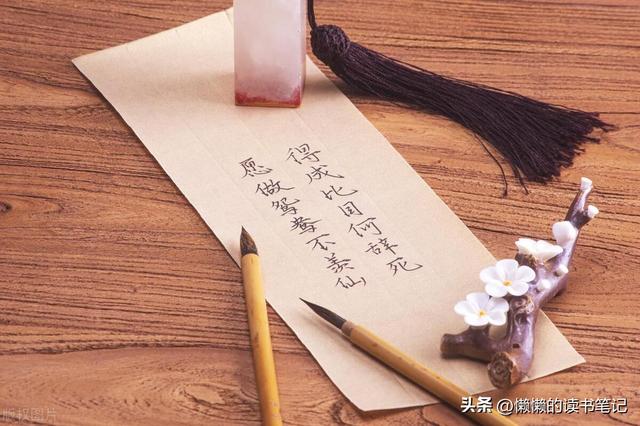 得成比目何辞死
愿做鸳鸯不羡仙
头条 @懒懒的读书笔记
版权图片